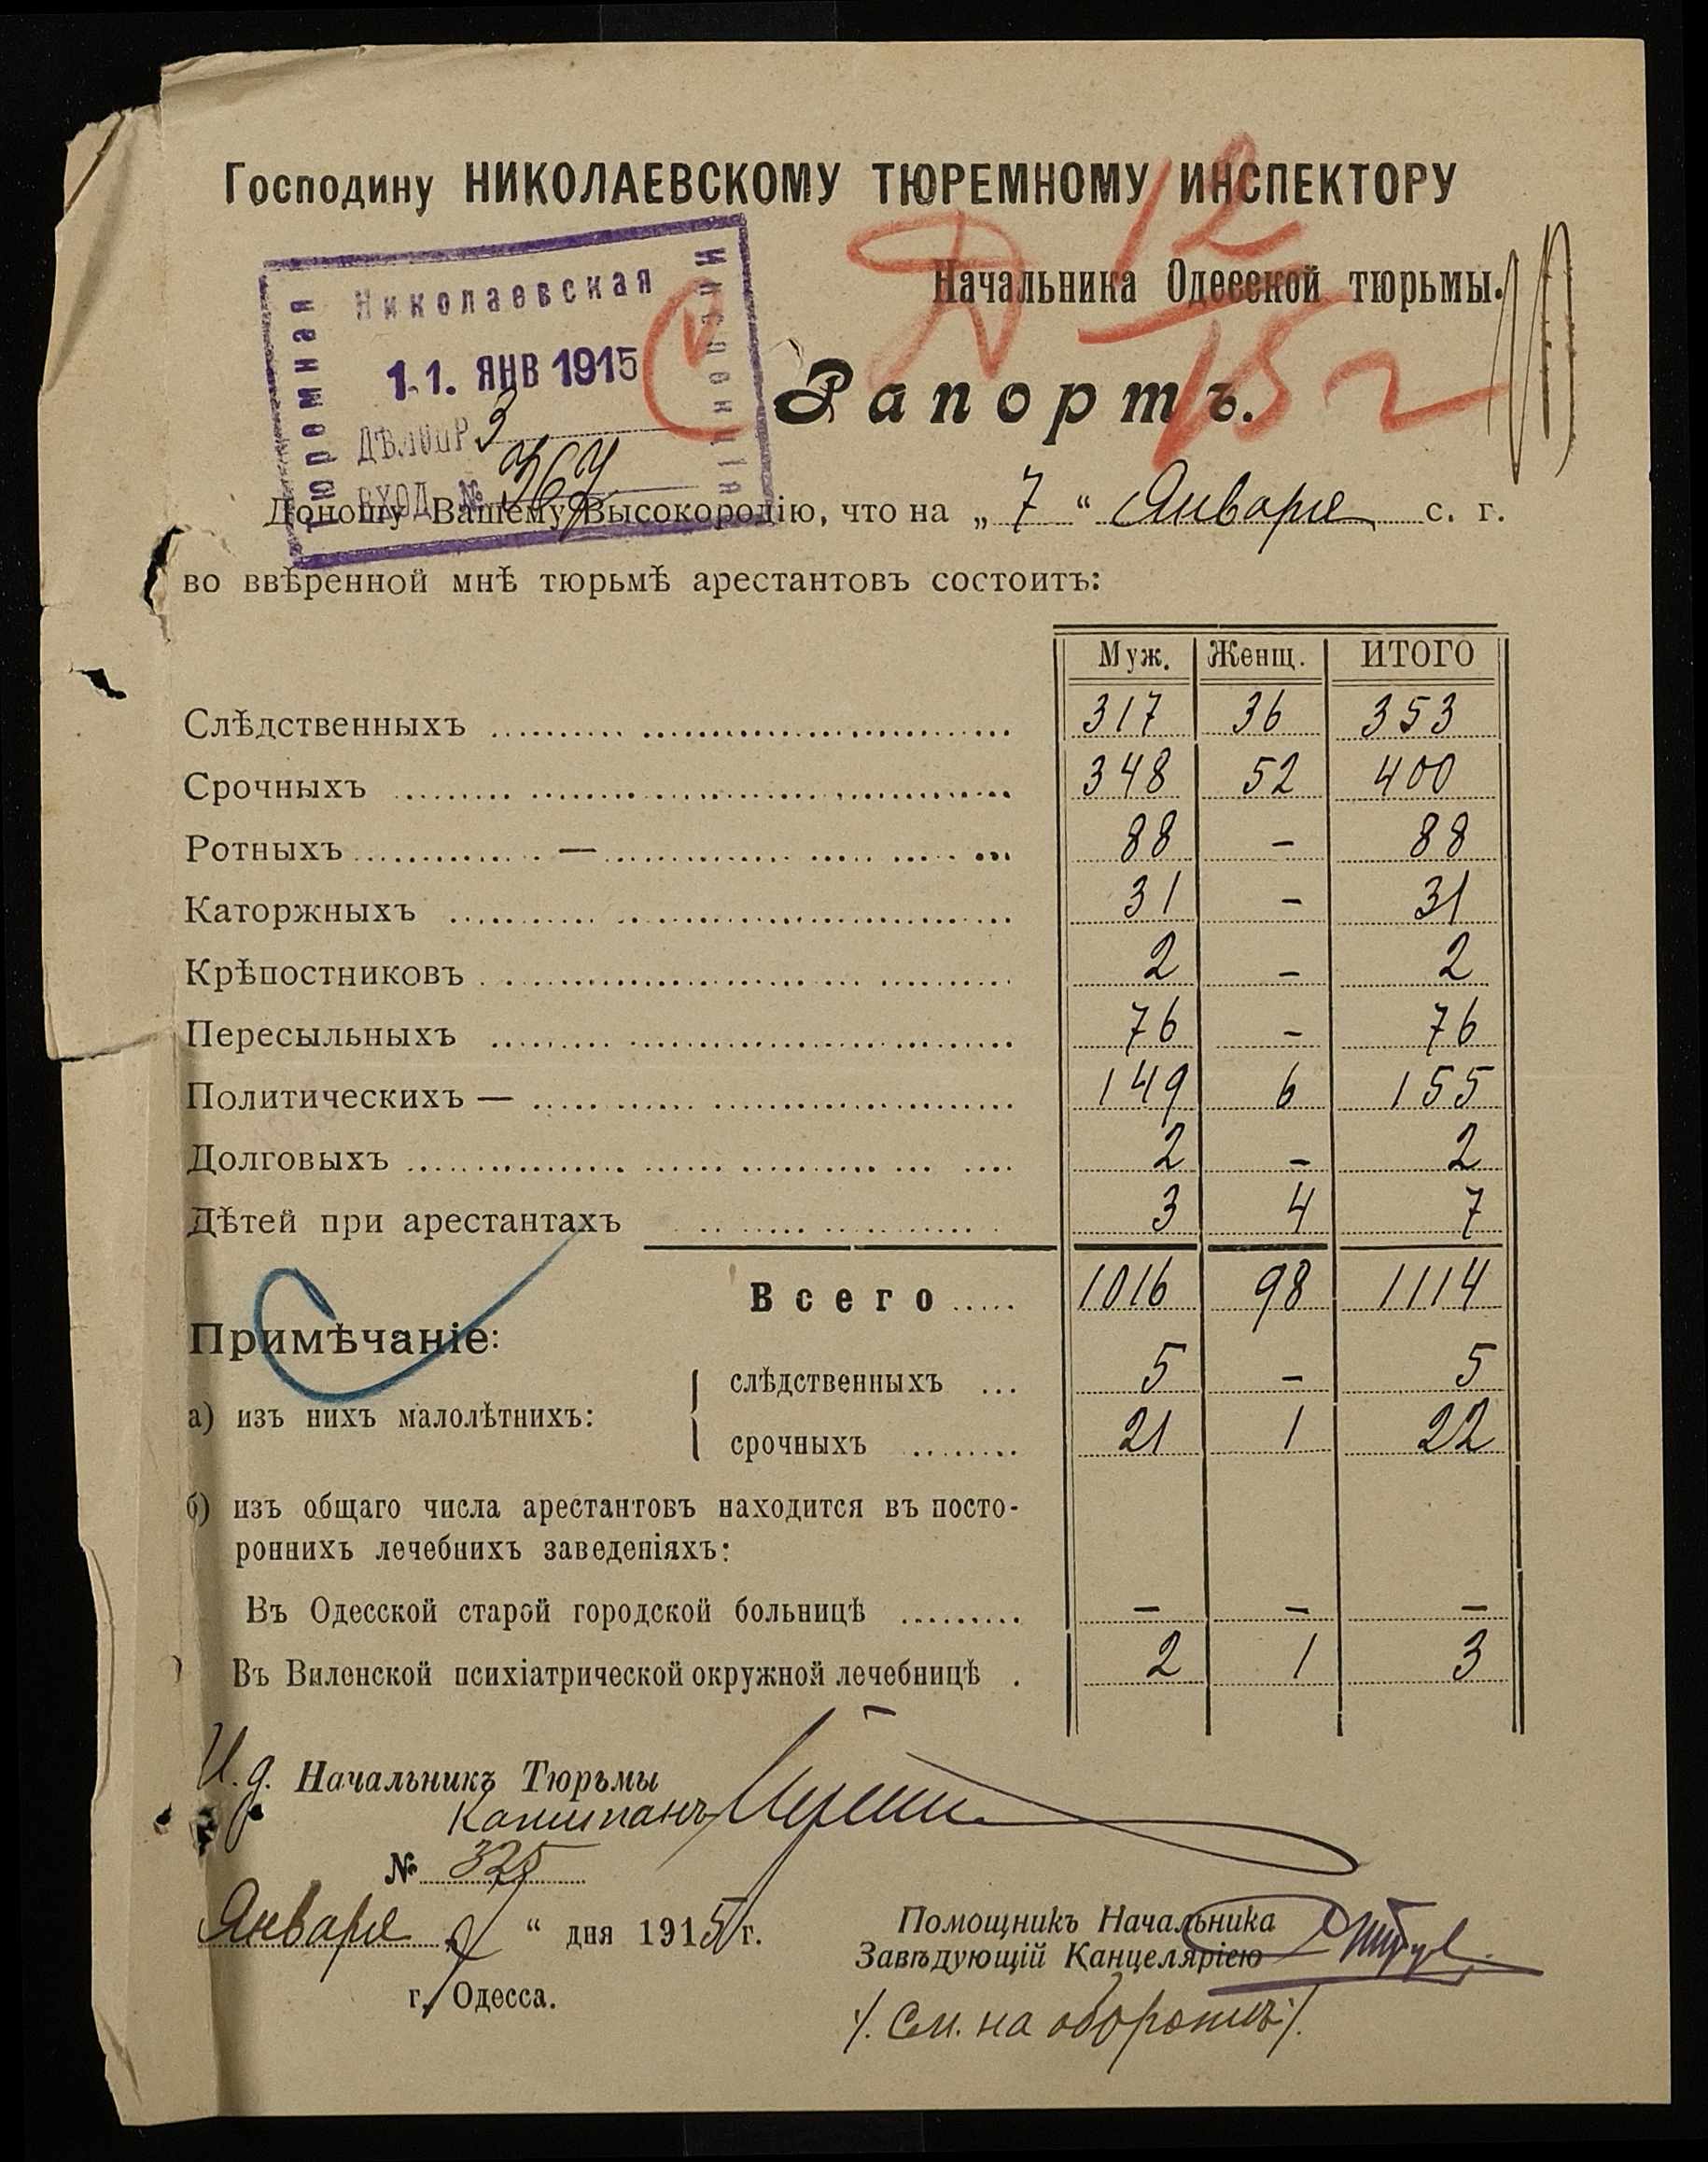 Господину НИКОЛАЕВСКОМУ ТЮРЕМНОМУ ИНСПЕКТОРУ
Начальника Одесской тюрьмы.
Николаевская
Тюремная
Инспекція
11. ЯНВ 1915
ДѢЛОПР 3
ВХОД. №
12
15 г
Рапортъ.
Доношу Вашему Высокородію, что на „ 7 “ Января с. г.
во ввѣренной мнѣ тюрьмѣ арестантовъ состоитъ:
Муж. Женщ. ИТОГО
Слѣдственныхъ 317 36 353
Срочныхъ 348 52 400
Ротныхъ — 88 - 88
Каторжныхъ 31 - 31
Крѣпостниковъ 2 - 2
Пересыльныхъ 76 - 76
Политическихъ — 149 6 155
Долговыхъ 2 - 2
Дѣтей при арестантахъ 3 4 7
Всего 1016 98 1114
Примѣчаніе:
слѣдственныхъ 5 - 5
а) изъ нихъ малолѣтнихъ:
срочныхъ 21 1 22
б) изъ общаго числа арестантовъ находится въ посто-
роннихъ лечебнихъ заведеніяхъ:
Въ Одесской старой городской больницѣ - - -
Въ Виленской психіатрической окружной лечебницѣ 2 1 3
И. д. Начальникъ Тюрьмы
Капитанъ
№ 325
Января „ “ дня 1915 г.
г. Одесса.
Помощникъ Начальника
Завѣдующій Канцеляріею
/. См. на оборотѣ /.